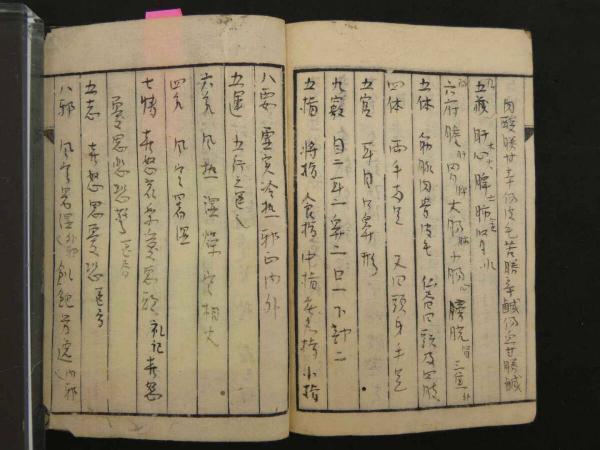 肉酸勝甘辛傷皮毛苦勝辛鹹傷血甘勝鹹
五臓 肝木 心火 脾土 肺金 腎水
六府 膽肝 胃脾 大腸肺 小腸心 膀胱腎 三焦
五体 筋脉肉骨皮毛 頭及四肢
四体 両手両足 又曰頭身手足
五官 耳目口鼻形
九竅 目二耳二鼻二口一下部二
五指 将指 食指 中指 無名指 小指
八要 虚実冷热邪正内外
五運 五行之運
六気 風热湿燥寒相火
四気 風寒暑湿
七情 喜怒哀楽愛惡欲 礼記 喜怒
憂思悲恐驚
五志 喜怒思憂恐
八邪 風寒暑湿外邪 飢飽労逸内邪